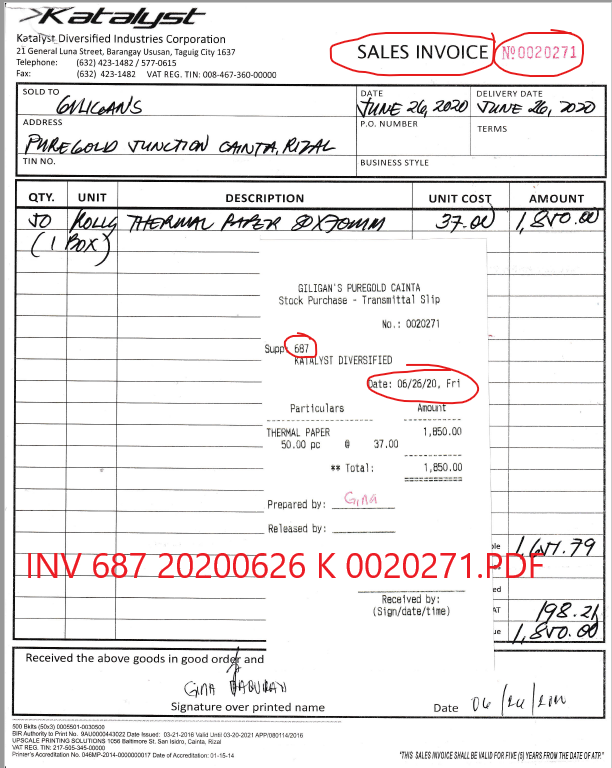 Katalyst
Katalyst Diversified Industries Corporation
21 General Luna Street, Barangay Ususan, Taguig City 1637
Telephone: (632) 423-1482 / 577-0615
Fax: (632) 423-1482 VAT REG. TIN: 008-467-360-00000
SALES INVOICE
Nº 0020271
SOLD TO
GILIGAN'S
DATE
JUNE 26, 2020
DELIVERY DATE
JUNE 26, 2020
ADDRESS
PUREGOLD JUNCTION CAINTA, RIZAL
P.O. NUMBER
TERMS
TIN NO.
BUSINESS STYLE
QTY. UNIT DESCRIPTION UNIT COST AMOUNT
50 ROLLS THERMAL PAPER 80X70MM 37.00 1,850.00
(1 BOX)
GILIGAN'S PUREGOLD CAINTA
Stock Purchase - Transmittal Slip
No.: 0020271
Supp: 687
KATALYST DIVERSIFIED
Date: 06/26/20, Fri
Particulars Amount
THERMAL PAPER 1,850.00
50.00 pc @ 37.00
** Total: 1,850.00
Prepared by: GINA
Released by:
Received by:
(Sign/date/time)
1,651.79
INV 687 20200626 K 0020271.PDF
198.21
1,850.00
Received the above goods in good order and
GINA
Signature over printed name
Date
500 Bklts (50x3) 0005501-0030500
BIR Authority to Print No. 9AU0000443022 Date Issued: 03-21-2016 Valid Until 03-20-2021 APP/080114/2016
UPSCALE PRINTING SOLUTIONS 1056 Baltimore St. San Isidro, Cainta, Rizal
VAT REG. TIN: 217-505-345-00000
Printer's Accreditation No. 046MP-2014-0000000017 Date of Accreditation: 01-15-14
"THIS SALES INVOICE SHALL BE VALID FOR FIVE (5) YEARS FROM THE DATE OF ATP."